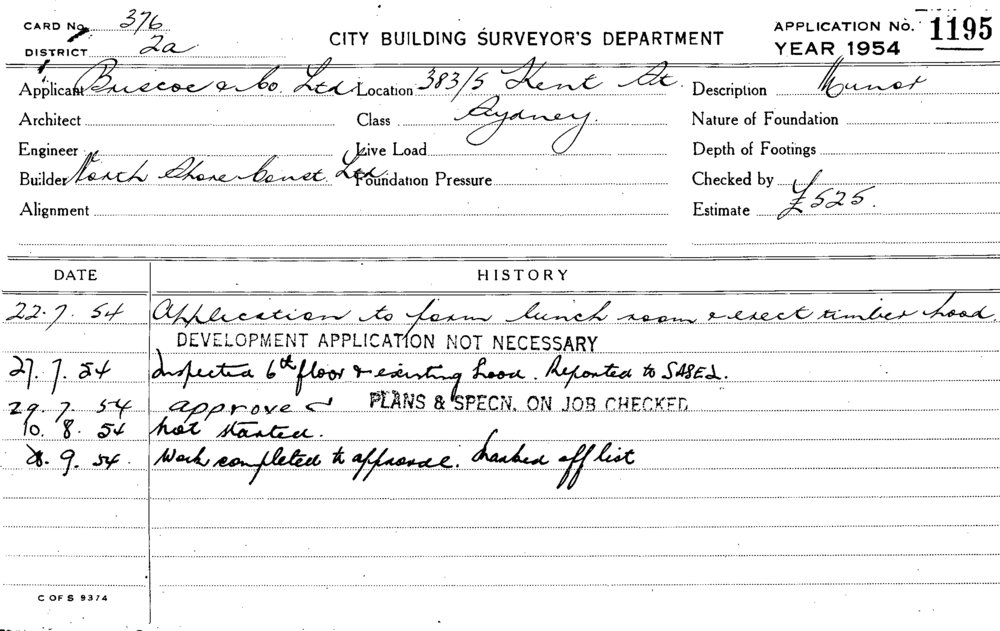 CARD No. 376
DISTRICT 2a
CITY BUILDING SURVEYOR'S DEPARTMENT
APPLICATION No. 1195
YEAR 1954
Applicant Briscoe & Co. Ltd Location 383/5 Kent St. Description Minor
Architect Class Sydney. Nature of Foundation
Engineer Live Load Depth of Footings
Builder North Shore Const. Ltd Foundation Pressure Checked by
Alignment Estimate £525.
DATE HISTORY
22.7.54 Application to form lunch room & erect timber hood.
DEVELOPMENT APPLICATION NOT NECESSARY
27.7.54 Inspected 6th floor & existing hood. Reported to
29.7.54 approved PLANS & SPECN. ON JOB CHECKED
10.8.54 Not started.
9.54 Work completed to approval. Marked off list
C OF S 9374